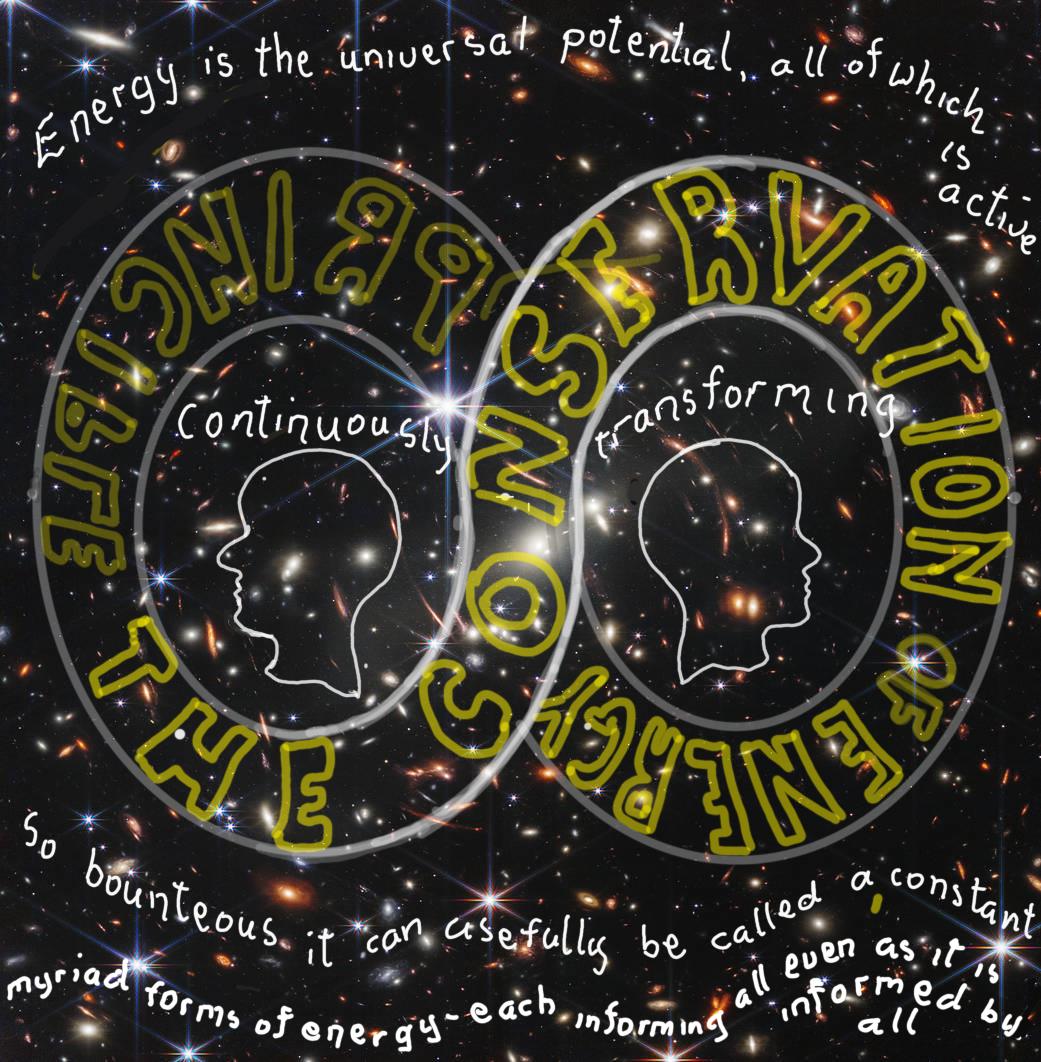 Energy is the universal potential, all of which
is
active
THE CONSERVATION OF ENERGY PRINCIPLE
Continuously transforming
So bounteous it can usefully be called a constant
myriad forms of energy~each informing all even as it is
informed by
all